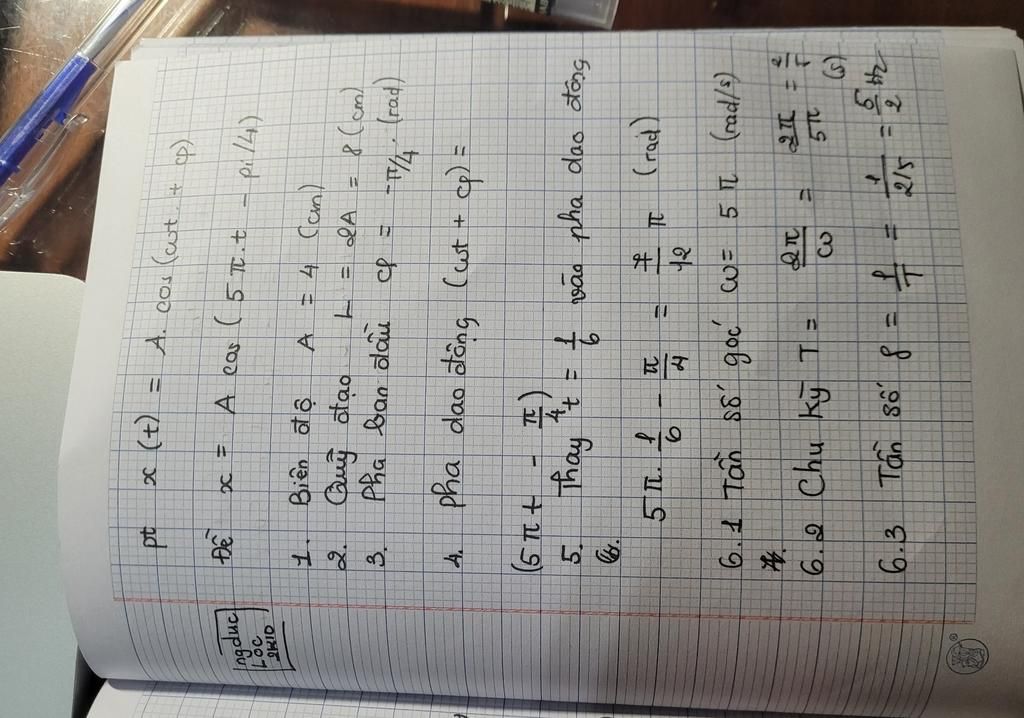 pt x(t) = A. cos(ωt + φ)
Đề x = A cos(5π.t - pi/4)
ngduc
Loc
2k10
1. Biên độ A = 4 (cm)
2. Quỹ đạo L = 2A = 8 (cm)
3. Pha ban đầu φ = -π/4. (rad)
4. pha dao động (ωt + φ) =
(5πt - π/4)
5. Thay t = 1/6 vào pha dao động
5π. 1/6 - π/4 = 7/12 π (rad)
6.1 Tần số góc ω = 5π (rad/s)
6.2 Chu kỳ T = 2π/ω = 2π/5π = 2/5 (s)
6.3 Tần số f = 1/T = 1/2/5 = 5/2 Hz